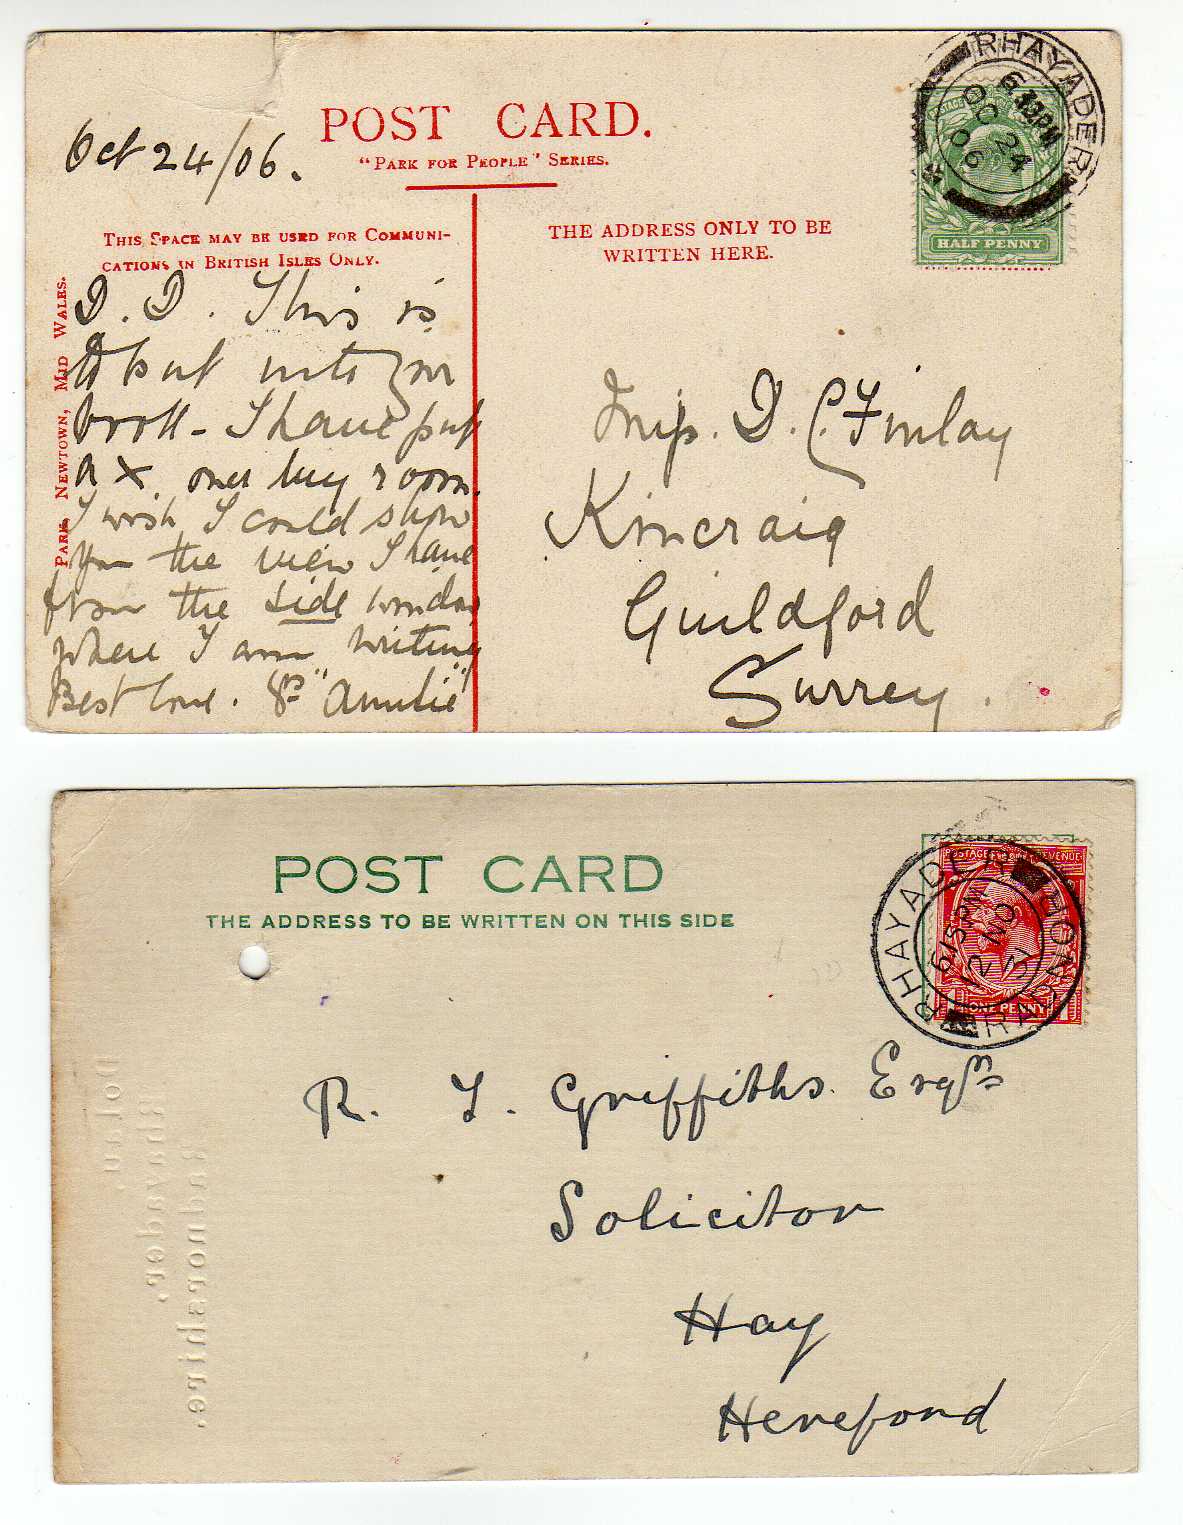 POST CARD.
"PARK FOR PEOPLE" SERIES.
Oct 24/06.
THIS SPACE MAY BE USED FOR COMMUNI-
CATIONS IN BRITISH ISLES ONLY.
THE ADDRESS ONLY TO BE
WRITTEN HERE.
RHAYADER
6.30PM
OC 24
06
HALF PENNY
PARK, NEWTOWN, MID WALES.
D. D. This is
to put into yr
book - I have put
a X over my room.
I wish I could show
you the view I have
from the side window
where I am writing
Best love. "Auntie"
Miss. D. C. Finlay
Kincraig
Guildford
Surrey.
POST CARD
THE ADDRESS TO BE WRITTEN ON THIS SIDE
POSTAGE REVENUE
ONE PENNY
RHAYADER
RADNOR
615PM
12 NO
R. T. Griffiths Esqre
Solicitor
Hay
Hereford
Rhayader,
Radnorshire.